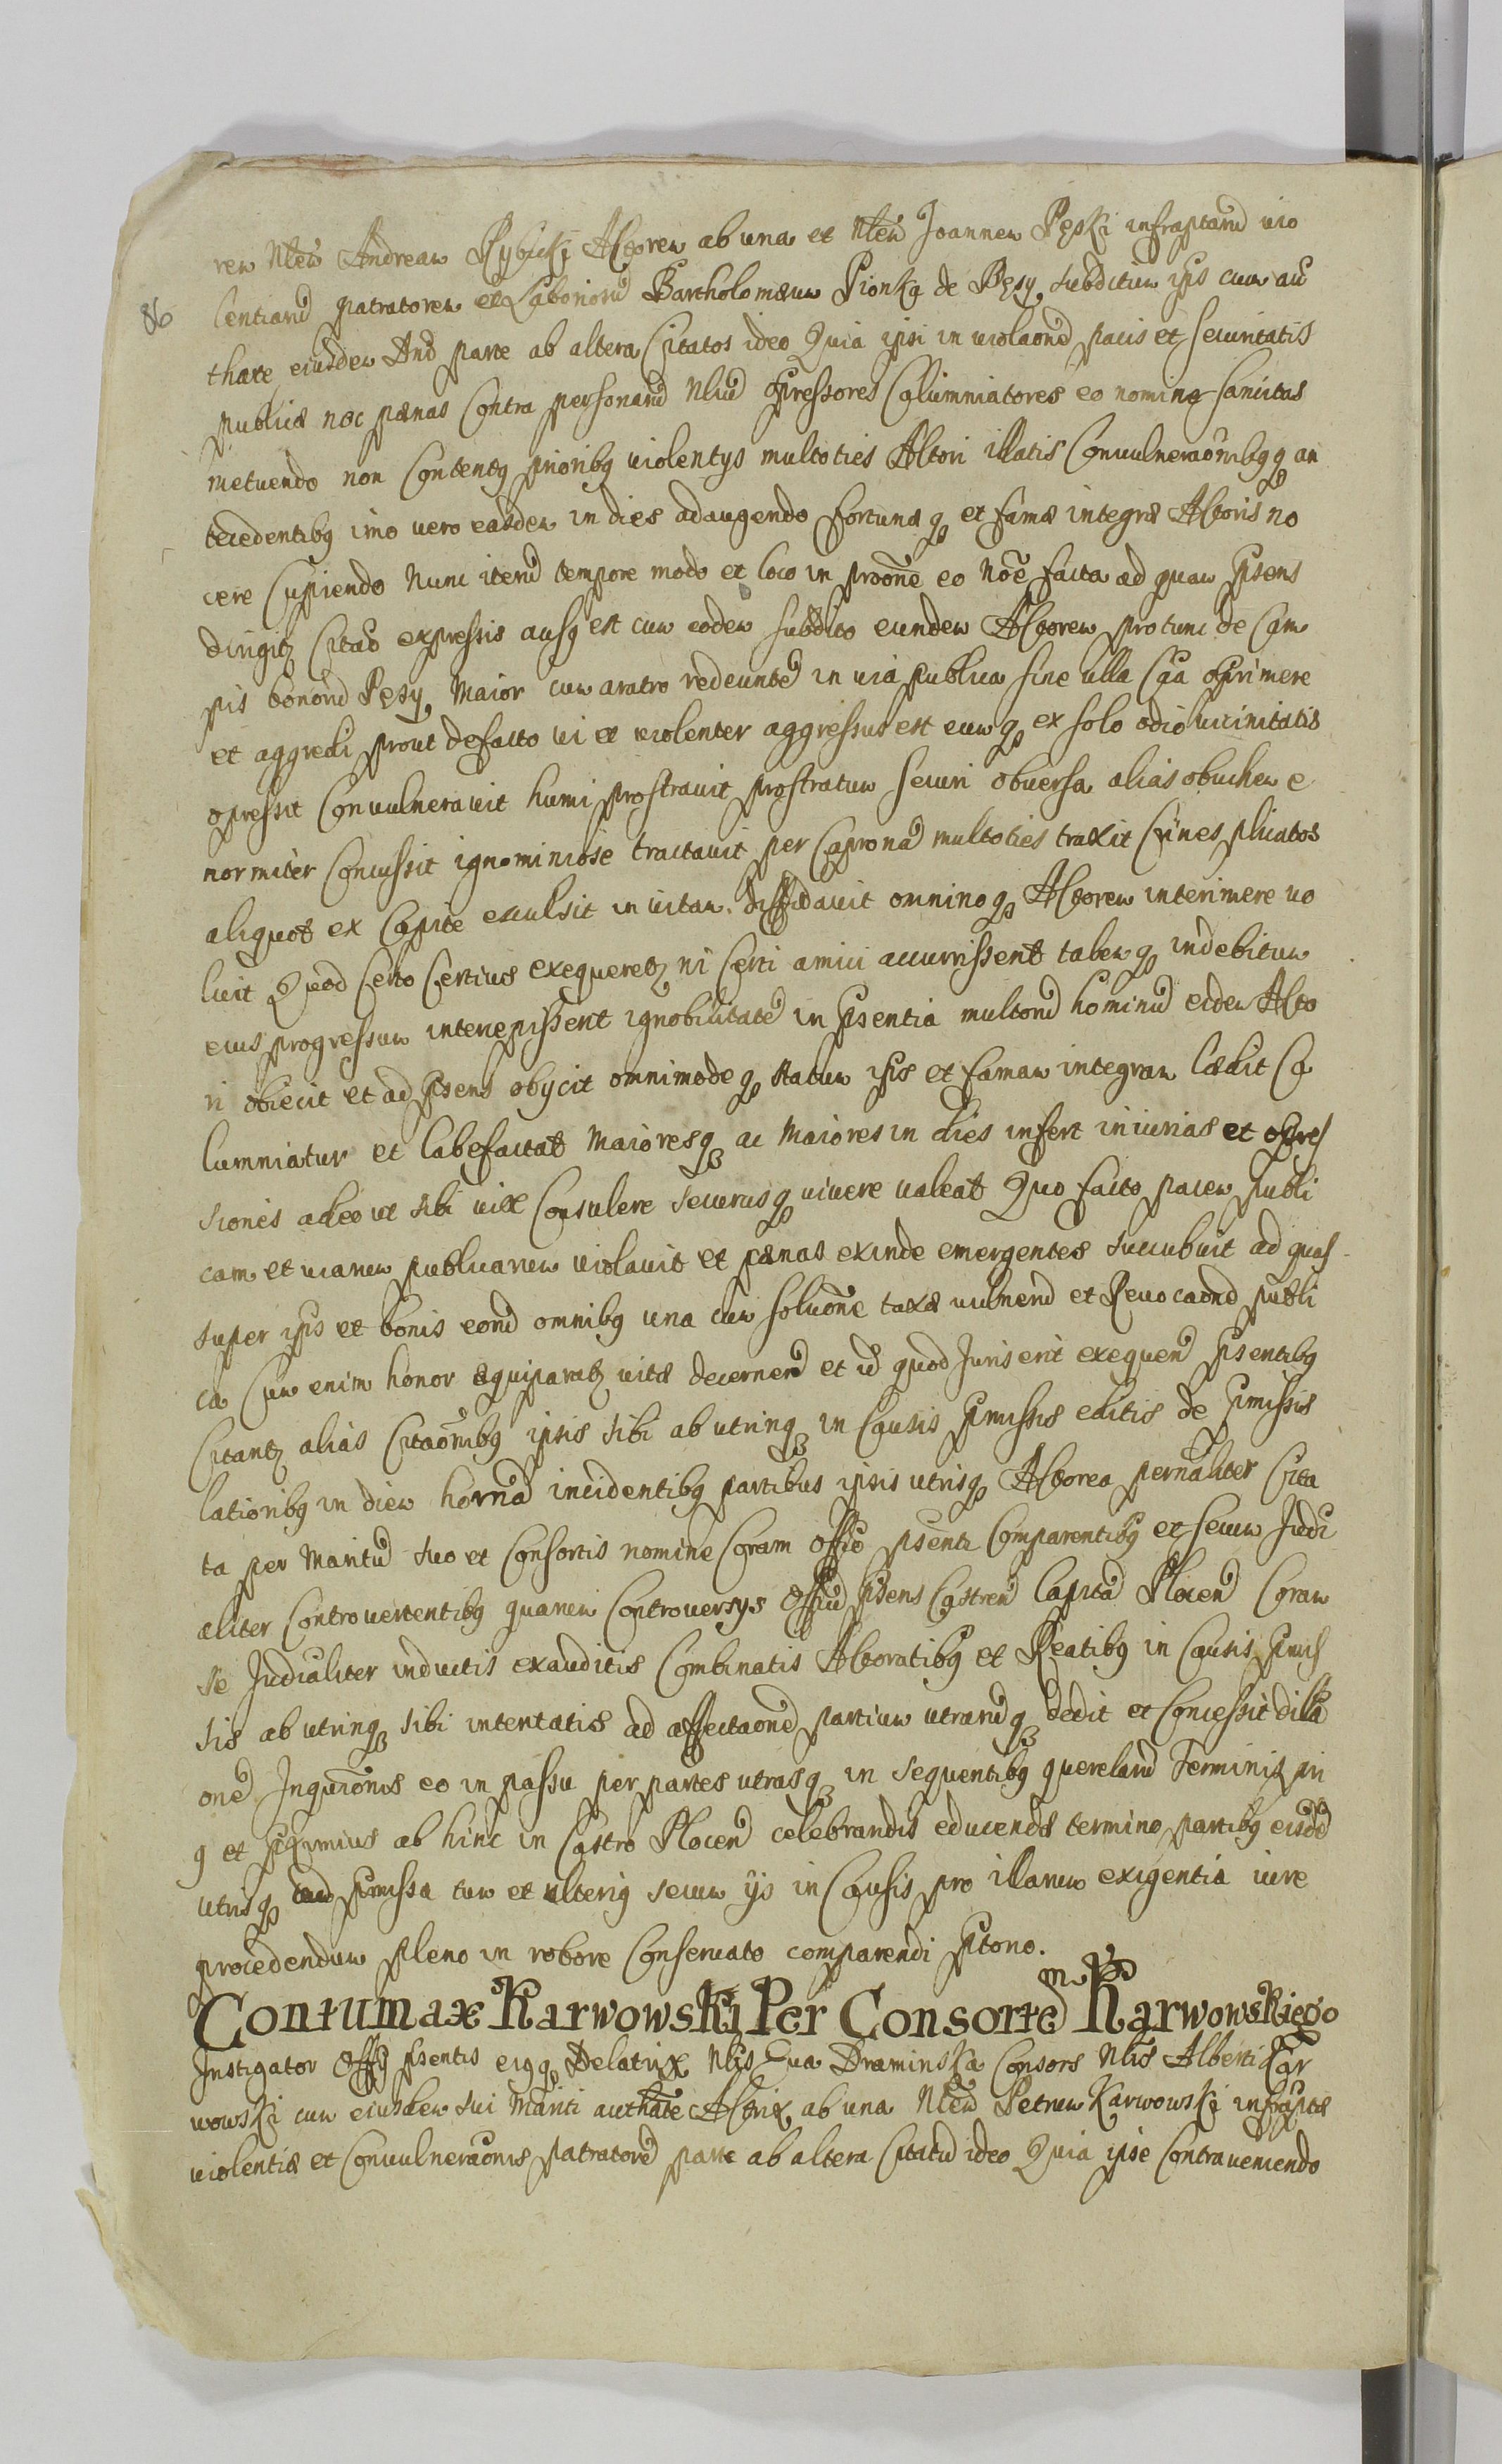 86
rem Nlem Andream Rybicki Actorem ab una et Nlem Joannem Pęski infraptarū vio
lentiarū patratorem et Laboriosū Bartholomæum Pionka de Pęsy subditum ipīs cum au
thate eiusdem And parte ab altera Citatos ideo Quia ipsi in violaōnē pacis et securitatis
publicæ nec pænas Contra personarū Nliū opressores Calumniatores eo nomine Sancitas
metuendo non Contentg prioribg violentys multoties Actori illatis Convulneraōnibg q an
tecedentibg imo vero easdem in dies adaugendo fortunæ q et famæ integræ Actoris no
cere Cupiendo Nunc iterū tempore modo et loco in proōne eo noē facta ad quam pñsens
dirigitz Citaō expressis ausg est cum eodem subdito eundem Actorem pro tunc de Cam
pis bonorū Pęsy Maior cum aratro redeuntē in via publica sine ulla Caā oprimere
et aggredi prout de facto vi et violenter aggressus est eum q ex solo odio vicinitatis
opressit Convulneravit humi prostravit prostratum securi obversa alias obuchem e
normiter Concussit ignominiose tractavit per Capronā multoties traxit Crines plicatos
aliquot ex Capite evulsit in vitam diffidavit omnino q Actorem interimere vo
luit Quod Certo Certius exequeretz ni Certi amici accurrissent talem q indebitum
eius progressum intercepissent ignobilitatē in pñsentia multorū hominū eidem Acto
ri obiecit et ad pñsens obycit omnimode q statum ipīs et famam integram lædit Ca
lumniatur et labefactat Maioresq ac Maiores in dies infert iniurias et opres
siones adeo ut sibi vix Consulere securusq vivere valeat Quo facto pacem publi
cam et vianem publicanem violavit et pænas exinde emergentes succubuit ad quas
super ipīs et bonis eorū omnibg una cum solvōne taxæ vulnerū et Revocaōnē publi
ca Cum enim honor æquiparatz vitæ decernend et id quod Juris erit exequend pñsentibg
Citantz alias Citaōnibg ipsis sibi ab utring in Causis pñmissis editis de pñmissis
lationibg in diem hornā incidentibg partibus ipsis utrisq Actorea pernaliter Cita
ta per Maritū suo et Consortis nomine Coram Offō psenti Comparentibg et secum Judi
aliter Controvertentibg quarum Controversys Offiū pñsens Castren Capitā Plocen Coram
se Judicialiter inductis exauditis Combinatis Actoratibg et Reatibg in Causis pñmis
sis ab utring sibi intentatis ad affectaōnē partium utrarū q dedit et Concessit dilā
onē Inquiōnis eo in passu per partes utrasq in sequentibg querelarū Terminis pri
g et proximius ab hinc in Castro Plocen celebrandis educendæ termino partibg eisdē
utrisq ad pñmissa tum et ulterig secum ijs in Causis pro illarum exigentia iure
procedendum pleno in robore Conservato comparendi ptono.
Contumax Karwowski Per Consortē mN Karwowskiego
Instigator Offy psentis eigq Delatrix Nlis Eva Draminska Consors Nlis Alberti Kar
wowski cum eiusdem sui Mariti authāte Actrix ab una Nlem Petrum Karwowski infraptæ
violentiæ et Convulneraōnis patratorē parte ab altera Citatū ideo Quia ipse Contraveniendo